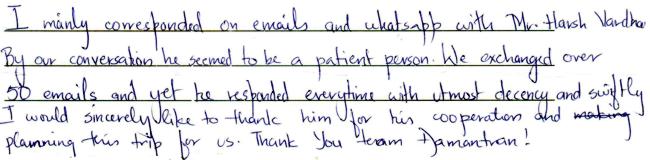 I mainly corresponded on emails and whatsapp with Mr. Harsh Vardha
By our conversation he seemed to be a patient person. We exchanged over
50 emails and yet he responded everytime with utmost decency and swiftly
I would sincerely like to thank him for his cooperation and making
planning this trip for us. Thank You team Damantran!